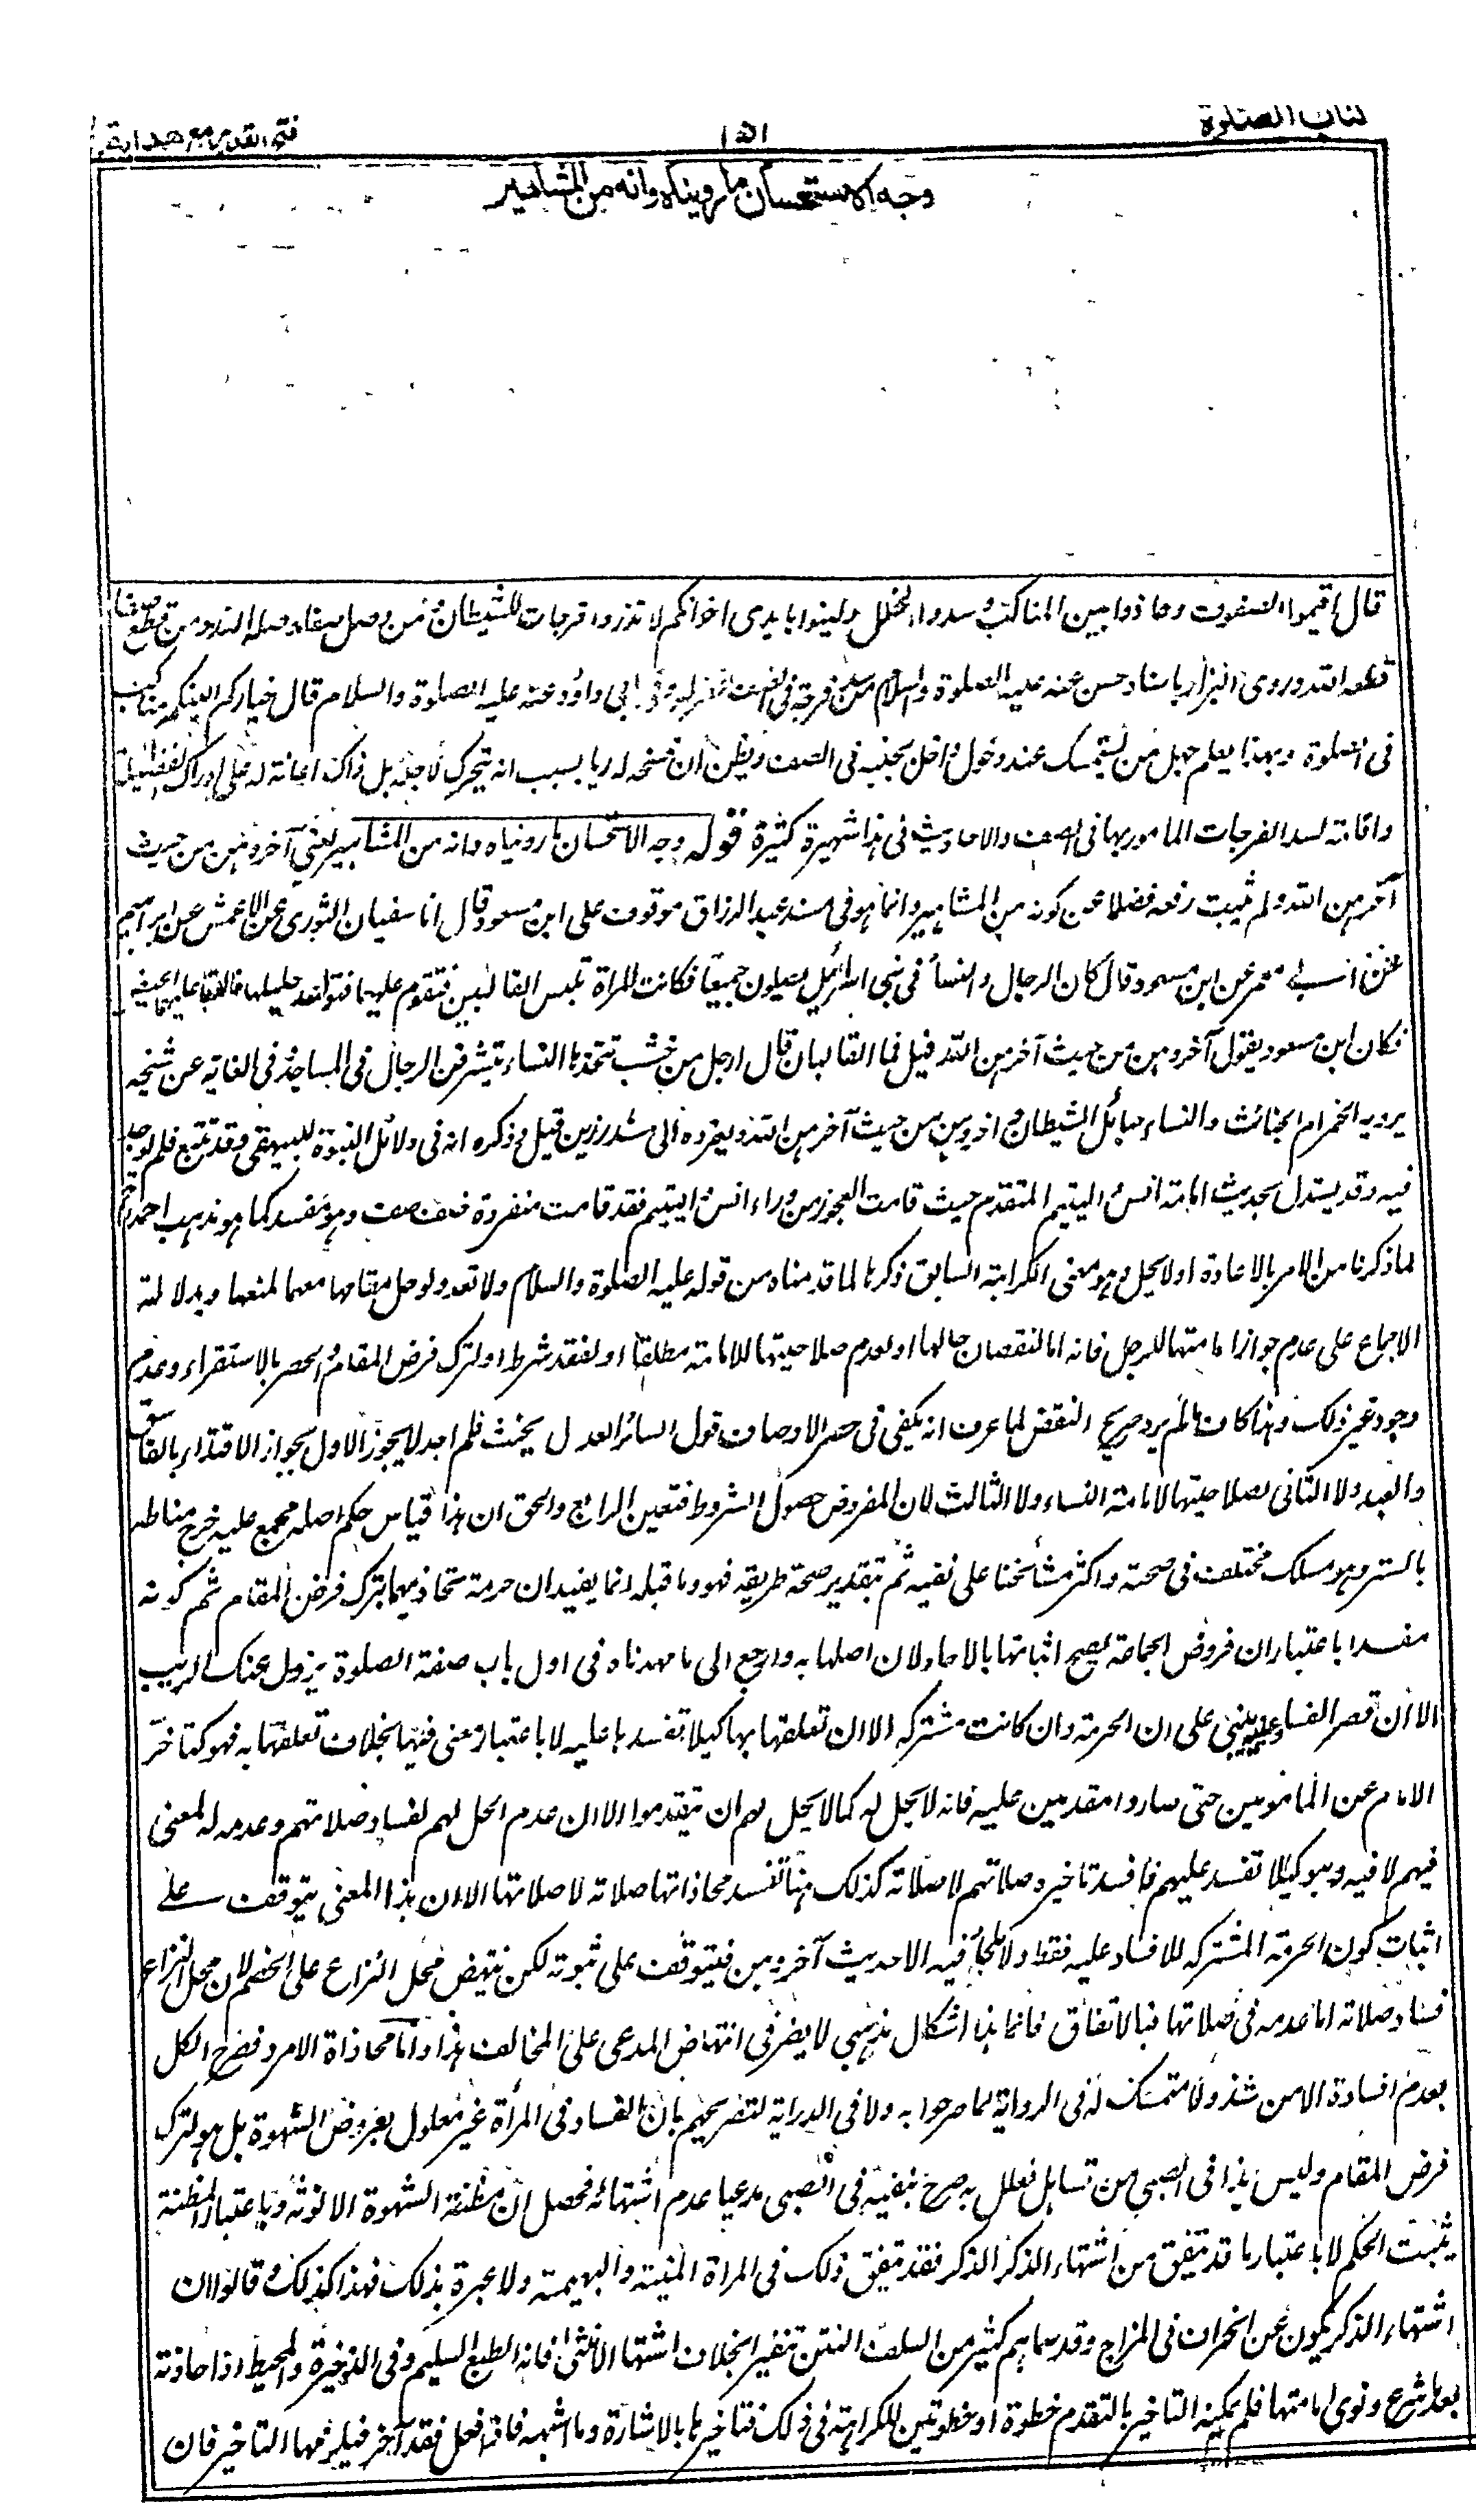 كتاب الصلوة
١٥١
فتح القدير مع هداية
وجه الاستحسان ما رويناه وانه من المشاهير
قال اقيموا الصفوف وحاذوا بين المناكب وسدوا الخلل ولينوا بايدى اخوانكم لا تذروا فرجات للشيطان من وصل صفا وصله الله ومن قطع صفا
قطعه الله وروى البزار باسناد حسن عنه عليه الصلوة والسلام من سد فرجة فى الصف غفر له وفى ابى داؤد عنه عليه الصلوة والسلام قال خياركم الينكم مناكب
فى الصلوة وبهذا يعلم جهل من يستمسك عند دخول داخل بجنبه فى الصف ويظن ان فسحه له ريا بسبب انه يتحرك لاجله بل ذاك اعانة له على ادراك الفضيلة
واقامة لسد الفرجات المامور بها فى الصف والاحاديث فى هذا شهيرة كثيرة قوله وجه الاستحسان ما رويناه وانه من المشاهير يعنى آخروهن من حيث
آخرهن الله ولم يثبت رفعه فضلا عن كونه من المشاهير وانما هو فى مسند عبد الرزاق موقوف على ابن مسعود قال انا سفيان الثورى عن الاعمش عن ابراهيم
عن ابى معمر عن ابن مسعود قال كان الرجال والنساء فى بنى اسرائيل يصلون جميعا فكانت المراة تلبس القالبين فتقوم عليهما فتواعد خليلها فالقى عليهما الحيض
فكان ابن مسعود يقول آخروهن من حيث آخرهن الله قيل فما القالبان قال ارجل من خشب تتخذها النساء يتشرفن الرجال فى المساجد وفى الغاية عن شيخه
يرويه الخمر ام الخبائث والنساء حبائل الشيطان واخروهن من حيث آخرهن الله ويعزوه الى مسند رزين قيل وذكره انه فى دلائل النبوة للبيهقى وقد تتبع فلم يوجد
فيه وقد يستدل بحديث امامة انس واليتيم المتقدم حيث قامت العجوز من وراء انس واليتيم فقد قامت منفردة خلف صف وهو مفسد كما هو مذهب احمد
لما ذكرنا من الامر بالاعادة او لا يحل وهو معنى الكراهة السابق ذكرها لما قدمناه من قوله عليه الصلوة والسلام ولا تعد ولو حل مقامها معهما لمنعها وبدلالة
الاجماع على عدم جواز امامتها للرجل فانه اما لنقصان حالها او لعدم صلاحيتها للامامة مطلقا او لفقد شرط او لترك فرض المقام والحصر بالاستقراء وعدم
وجود غير ذلك وهذا كاف ما لم يرد صريح النقض لما عرف انه يكفى فى حصر الاوصاف قول السائر العدل بحثت فلم اجد لا يجوز الاول لجواز الاقتداء بالفاسق
والعبد ولا الثانى لصلاحيتها لامامة النساء ولا الثالث لان المفروض حصول الشروط فتعين الرابع والحق ان هذا قياس حكم اصله مجمع عليه خرج مناطه
بالستر وهو مسلك مختلف فى صحته واكثر مشائخنا على نفيه ثم بتقدير صحة طريقه فهو وما قبله انما يفيدان حرمة محاذيهما بترك فرض المقام ثم كونه
مفسدا باعتبار ان فروض الجماعة يصح اثباتها بالاحاد لان اصلها به وارجع الى ما مهدناه فى اول باب صفة الصلوة يزول عنك الريب
الا ان قصر الفساد عليه يبنى على ان الحرمة وان كانت مشتركة الا ان تعلقها بها كيلا تفسد ما عليه لا باعتبار معنى فيها بخلاف تعلقها به فهو كتاخر
الامام عن المامومين حتى صاروا مقدمين عليه فانه لا يحل له كما لا يحل لهم ان يتقدموا الا ان عدم الحل لهم لفساد صلاتهم وعدمه له لمعنى
فيهم لا فيه وهو كيلا تفسد عليهم فافسد تاخيره صلاتهم لا صلاته كذلك هنا تفسد محاذاتها صلاته لا صلاتها الا ان هذا المعنى يتوقف على
اثبات كون الحرمة المشتركة للافساد عليه فقط ولا ملجأ فيه الا حديث آخروهن فيتوقف على ثبوته لكن ينتهض محل النزاع على الخصم لان محل النزاع
فساد صلاته اما عدمه فى صلاتها فبالاتفاق فانما هذا اشكال مذهبى لا يضر فى انتهاض المدعى على المخالف هذا واما محاذاة الامرد فصرح الكل
بعدم افسادة الا من شذ ولا متمسك له فى الرواية لما صرحوا به ولا فى الدراية لتصريحهم بان الفساد فى المرأة غير معلول بعروض الشهوة بل هو لترك
فرض المقام وليس هذا فى الصبى ومن تساهل فعلل به صرح بنفيه فى الصبى مدعيا عدم اشتهائه فحصل ان مظنة الشهوة الانوثة وباعتبار المظنة
يثبت الحكم لا باعتبار ما قد يتفق من اشتهاء الذكر الذكر فقد يتفق ذلك فى المراة الميتة والبهيمة ولا عبرة بذلك فهذا كذلك وقالوا ان
اشتهاء الذكر يكون عن انحراف فى المزاج وقد سماهم كثير من السلف النتن تنفيرا بخلاف اشتهاء الانثى فانه الطبع السليم وفى الذخيرة والمحيط اذا حاذته
بعد ما شرع ونوى امامتها فلم يمكنه التاخير بالتقدم خطوة او خطوتين للكراهة فى ذلك فتاخيرها بالاشارة وما اشبهه فاذا فعل فقد آخر فيلزمها التاخير فان